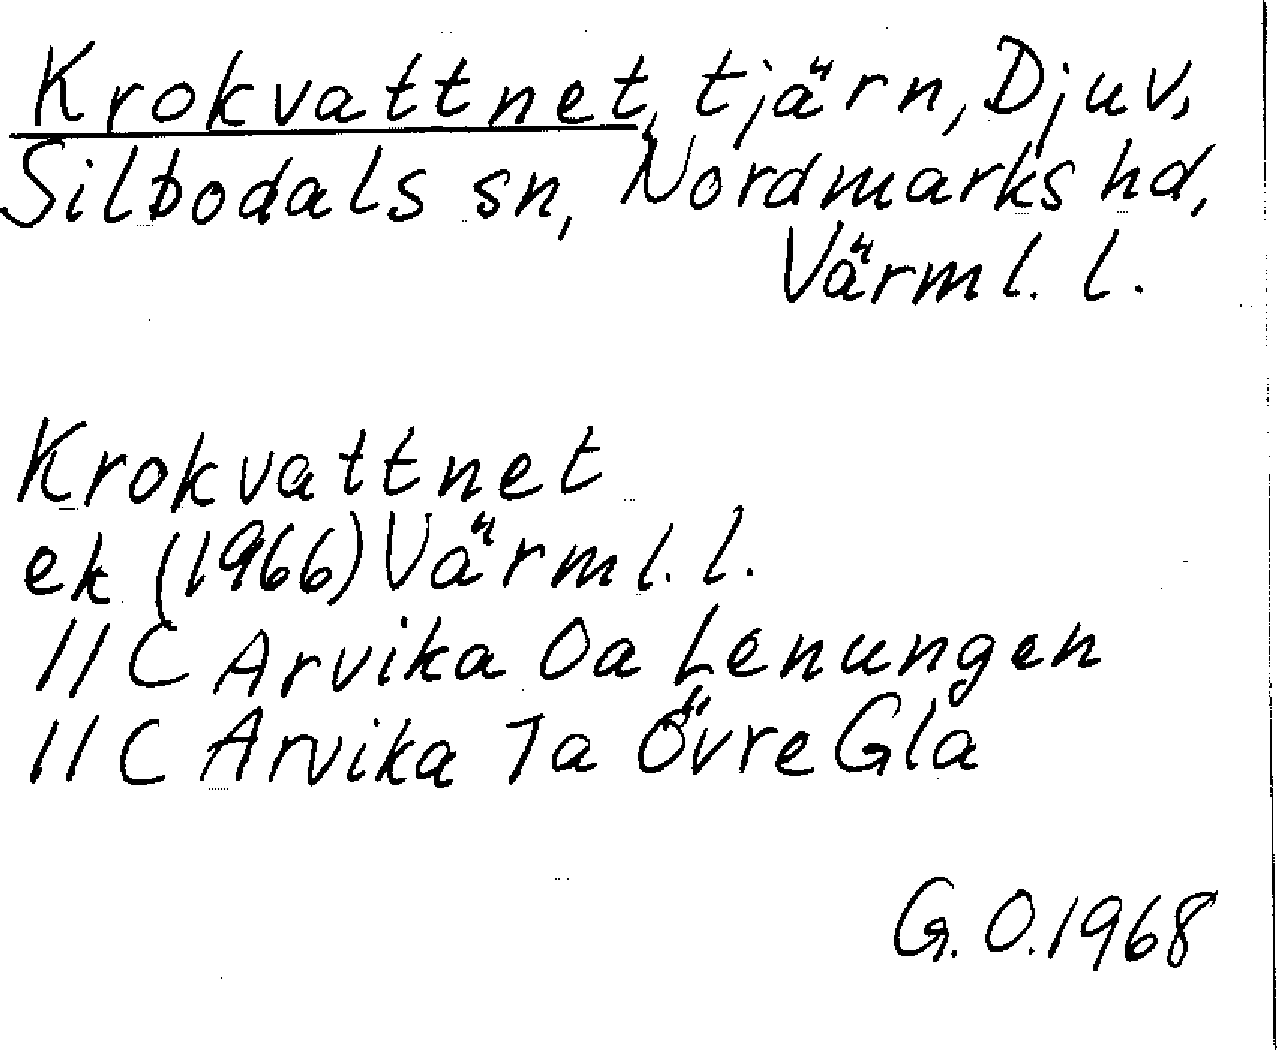 Krokvattnet, tjärn, Djuv,
Silbodals sn, Nordmarks hd,
Värml. l.
Krokvattnet
ek (1966) Värml. l.
11 C Arvika 0a Lenungen
11 C Arvika 1a Övre Gla
G. O. 1968